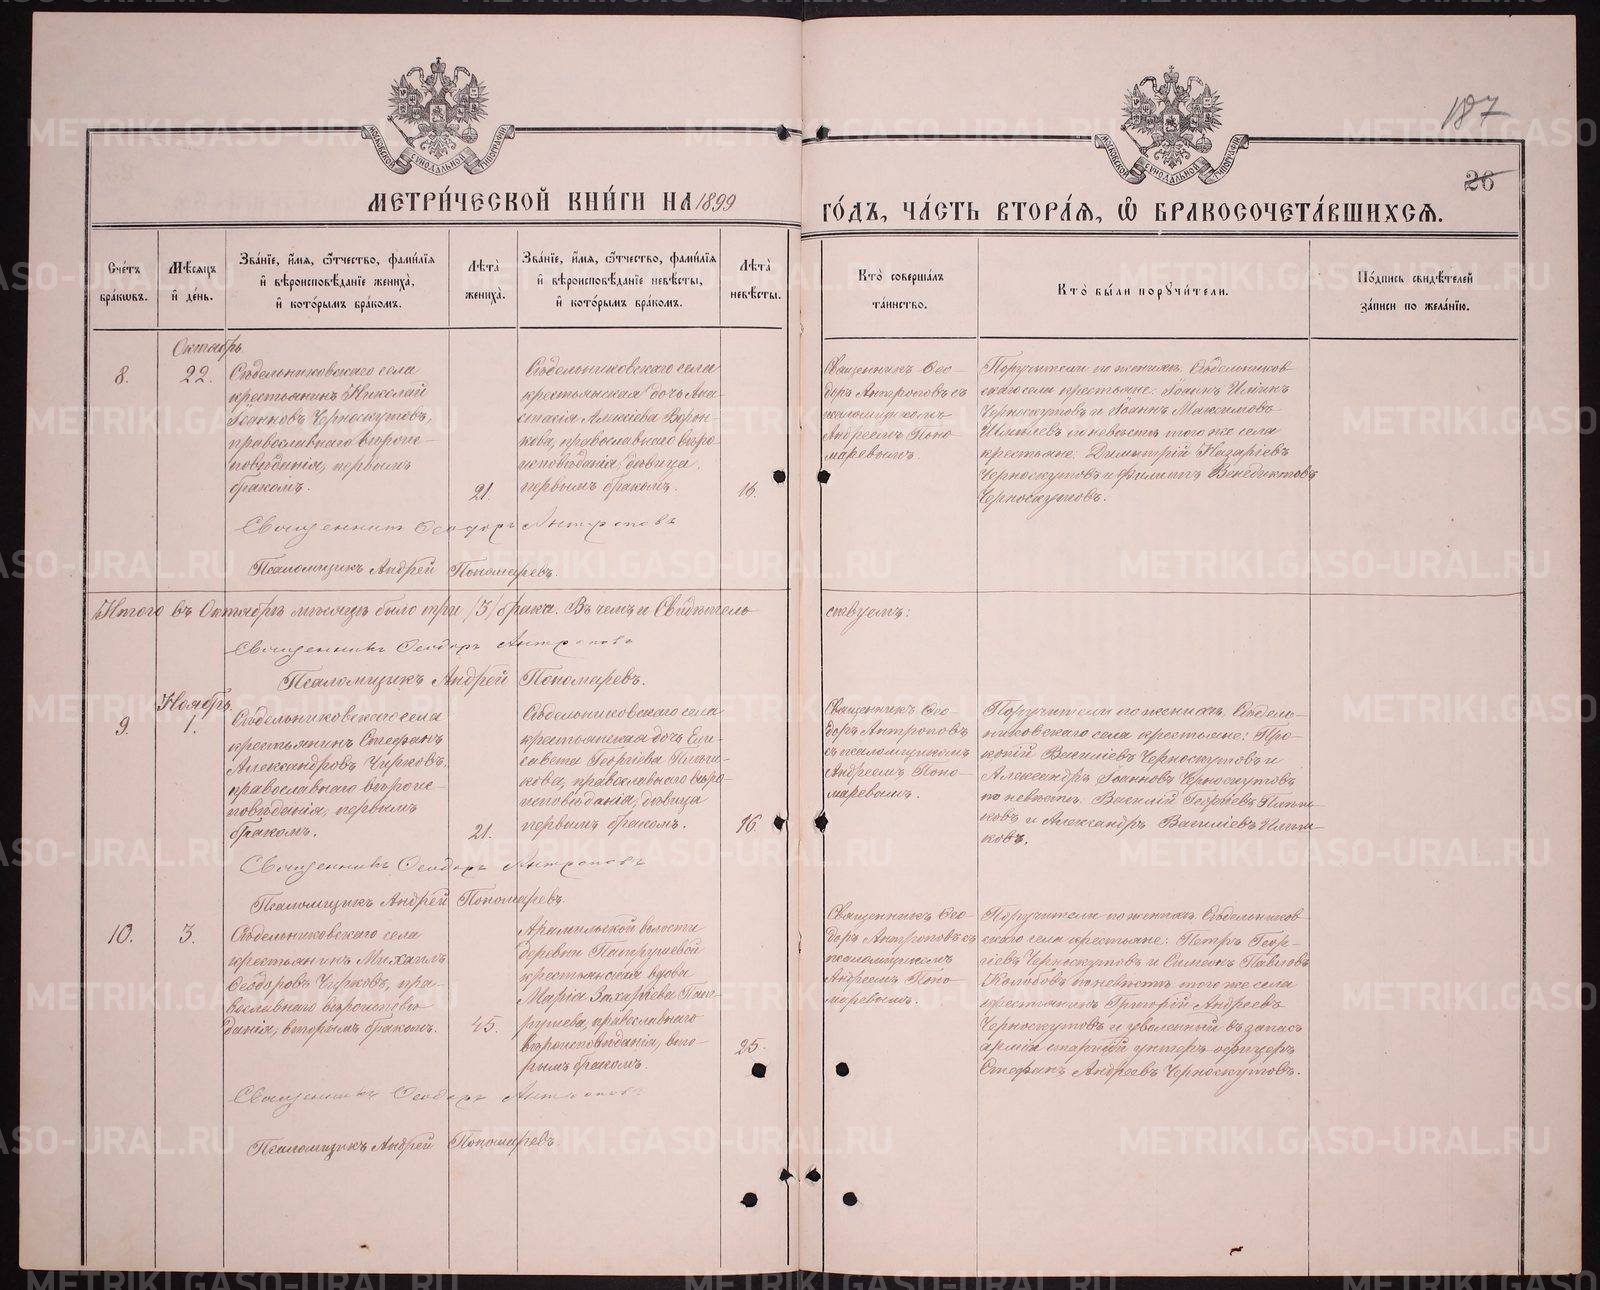 187
26
МОСКОВСКОЙ СѴНОДАЛЬНОЙ ТИПОГРАФІИ
МОСКОВСКОЙ СѴНОДАЛЬНОЙ ТИПОГРАФІИ
МЕТРИ́ЧЕСКОЙ КНИ́ГИ НА 1899 ГО́ДЪ, ЧА́СТЬ ВТОРА́Я, Ѡ БРАКОСОЧЕТА́ВШИХСЯ.
Сче́тъ
бра́кѡвъ.
Мѣ́сяцъ
и҆ де́нь.
Зва́нїе, и҆́мя, ѻ҆́тчество, фами́лїя
и҆ вѣроисповѣ́данїе жениха̀,
и҆ кото́рымъ бра́комъ.
Лѣ́та
жениха̀.
Зва́нїе, и҆́мя, ѻ҆́тчество, фами́лїя
и҆ вѣроисповѣ́данїе невѣ́сты,
и҆ кото́рымъ бра́комъ.
Лѣ́та
невѣ́сты.
Кто̀ соверша́лъ
та́инство.
Кто̀ бы́ли порꙋчи́тели.
По́дпись свидѣ́телей
за́писи по жела́нїю.
Октябрь
8.
22.
Сѣдельниковскаго села
крестьянинъ Николай
Іоанновъ Черноскутовъ,
православнаго вѣроис-
повѣданія, первымъ
бракомъ.
21.
Сѣдельниковскаго села
крестьянская дочь Ана-
стасія Алексіева Ворон-
кова, православнаго вѣро-
исповѣданія, дѣвица,
первымъ бракомъ.
16.
Священникъ Ѳео-
доръ Антроповъ съ
псаломщикомъ
Андреемъ Поно-
маревымъ.
Поручители по женихѣ Сѣдельников-
скаго села крестьяне: Іоаннъ
Черноскутовъ и Іоаннъ Максимовъ
и невѣстѣ того же села
крестьяне: Димитрій Назаріевъ
Черноскутовъ и Филиппъ Венедиктовъ
Черноскутовъ.
Священникъ Ѳеодоръ Антроповъ
Псаломщикъ Андрей Пономаревъ.
Итого въ Октябрѣ мѣсяцѣ было три /3/ брака. Въ чемъ и Свидѣтель-
ствуемъ:
Священникъ Ѳеодоръ Антроповъ
Псаломщикъ Андрей Пономаревъ.
Ноябрь
9.
1.
Сѣдельниковскаго села
крестьянинъ Стефанъ
Александровъ Чирковъ,
православнаго вѣроис-
повѣданія, первымъ
бракомъ.
21.
Сѣдельниковскаго села
крестьянская дочь Ели-
савета Георгіева Плѣш-
кова, православнаго вѣро-
исповѣданія, дѣвица
первымъ бракомъ.
16.
Священникъ Ѳео-
доръ Антроповъ
съ псаломщикомъ
Андреемъ Поно-
маревымъ.
Поручители по женихѣ Сѣдель-
никовскаго села крестьяне: Про-
копій Василіевъ Черноскутовъ и
Александръ Іоанновъ Черноскутовъ
по невѣстѣ Василій Георгіевъ Плѣш-
ковъ и Александръ Василіевъ Плѣш-
ковъ.
Священникъ Ѳеодоръ Антроповъ
Псаломщикъ Андрей Пономаревъ.
10.
3.
Сѣдельниковскаго села
крестьянинъ Михаилъ
Ѳеодоровъ Чирковъ, пра-
вославнаго вѣроисповѣ-
данія, вторымъ бракомъ.
45.
Арамильской волости
деревни Патрушевой
крестьянская вдова
Марія Захаріева Пат-
рушева, православнаго
вѣроисповѣданія, вто-
рымъ бракомъ.
25.
Священникъ Ѳео-
доръ Антроповъ съ
псаломщикомъ
Андреемъ Поно-
маревымъ.
Поручители по женихѣ Сѣдельников-
скаго села крестьяне: Петръ Геор-
гіевъ Черноскутовъ и Симеонъ Павловъ
Колобовъ по невѣстѣ того же села
крестьянинъ Григорій Андреевъ
Черноскутовъ и уволенный въ запасъ
арміи старшій унтеръ-офицеръ
Стефанъ Андреевъ Черноскутовъ.
Священникъ Ѳеодоръ Антроповъ
Псаломщикъ Андрей Пономаревъ.
METRIKI.GASO-URAL.RU